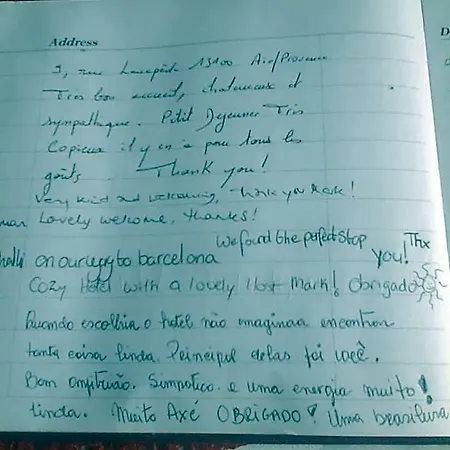 Address
D
3, rue Lacepède 13100 A.e/Provence
Très bon accueil, chaleureux et
sympathique. Petit Dejeuner Très
Copieux il y en a pour tous les
goûts. Thank you!
Very kind and welcoming, Thank you Mark!
Lovely welcome, thanks!
we found the perfect stop
Thx
on our way to barcelona
you!
Cozy Hotel with a lovely Host Mark! Obrigado
Quando escolhia o hotel não imaginava encontrar
tanta coisa linda. Principal delas foi você.
Bom anfitrião. Simpatico e uma energia muito!
linda. Muito Axé OBRIGADO! Uma brasileira